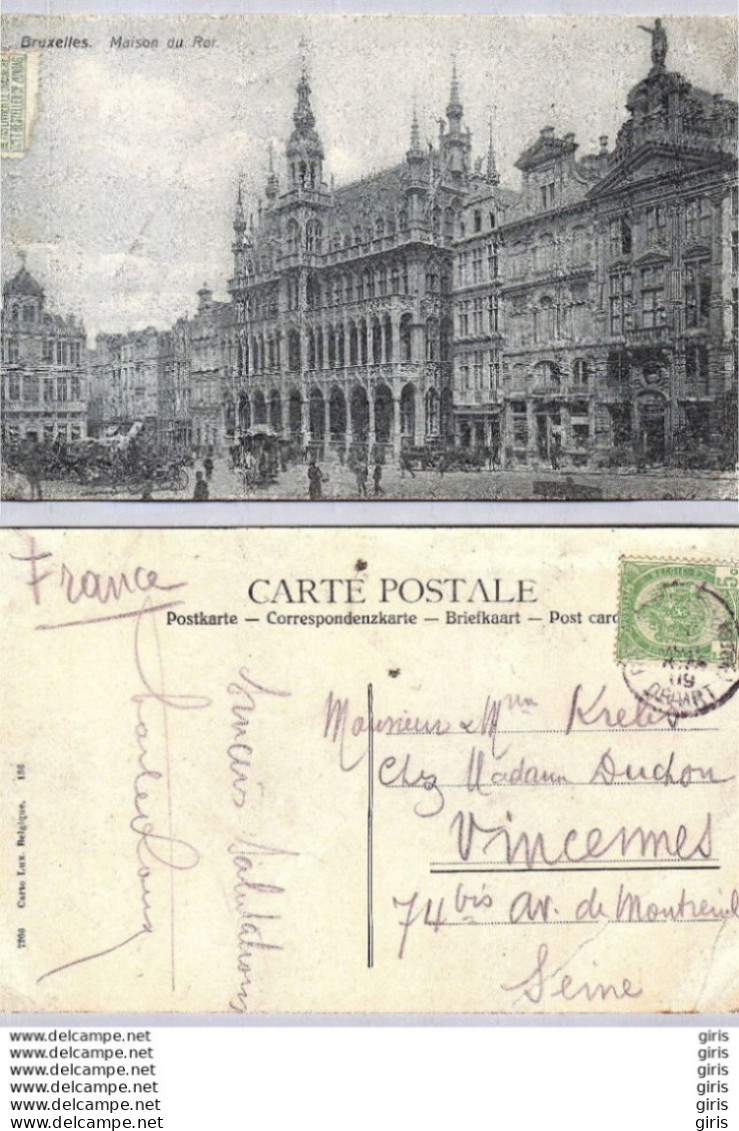 Bruxelles. Maison du Roi.
France
CARTE POSTALE
Postkarte — Correspondenzkarte — Briefkaart — Post card
5
09
DEPART
Monsieur & Mme
Chez Madame Duchon
Vincennes
74 bis av. de Montreuil
Seine
Sincères Salutations
7266 Carte Lux. Belgique. 156
www.delcampe.net
www.delcampe.net
www.delcampe.net
www.delcampe.net
www.delcampe.net
www.delcampe.net
giris
giris
giris
giris
giris
giris